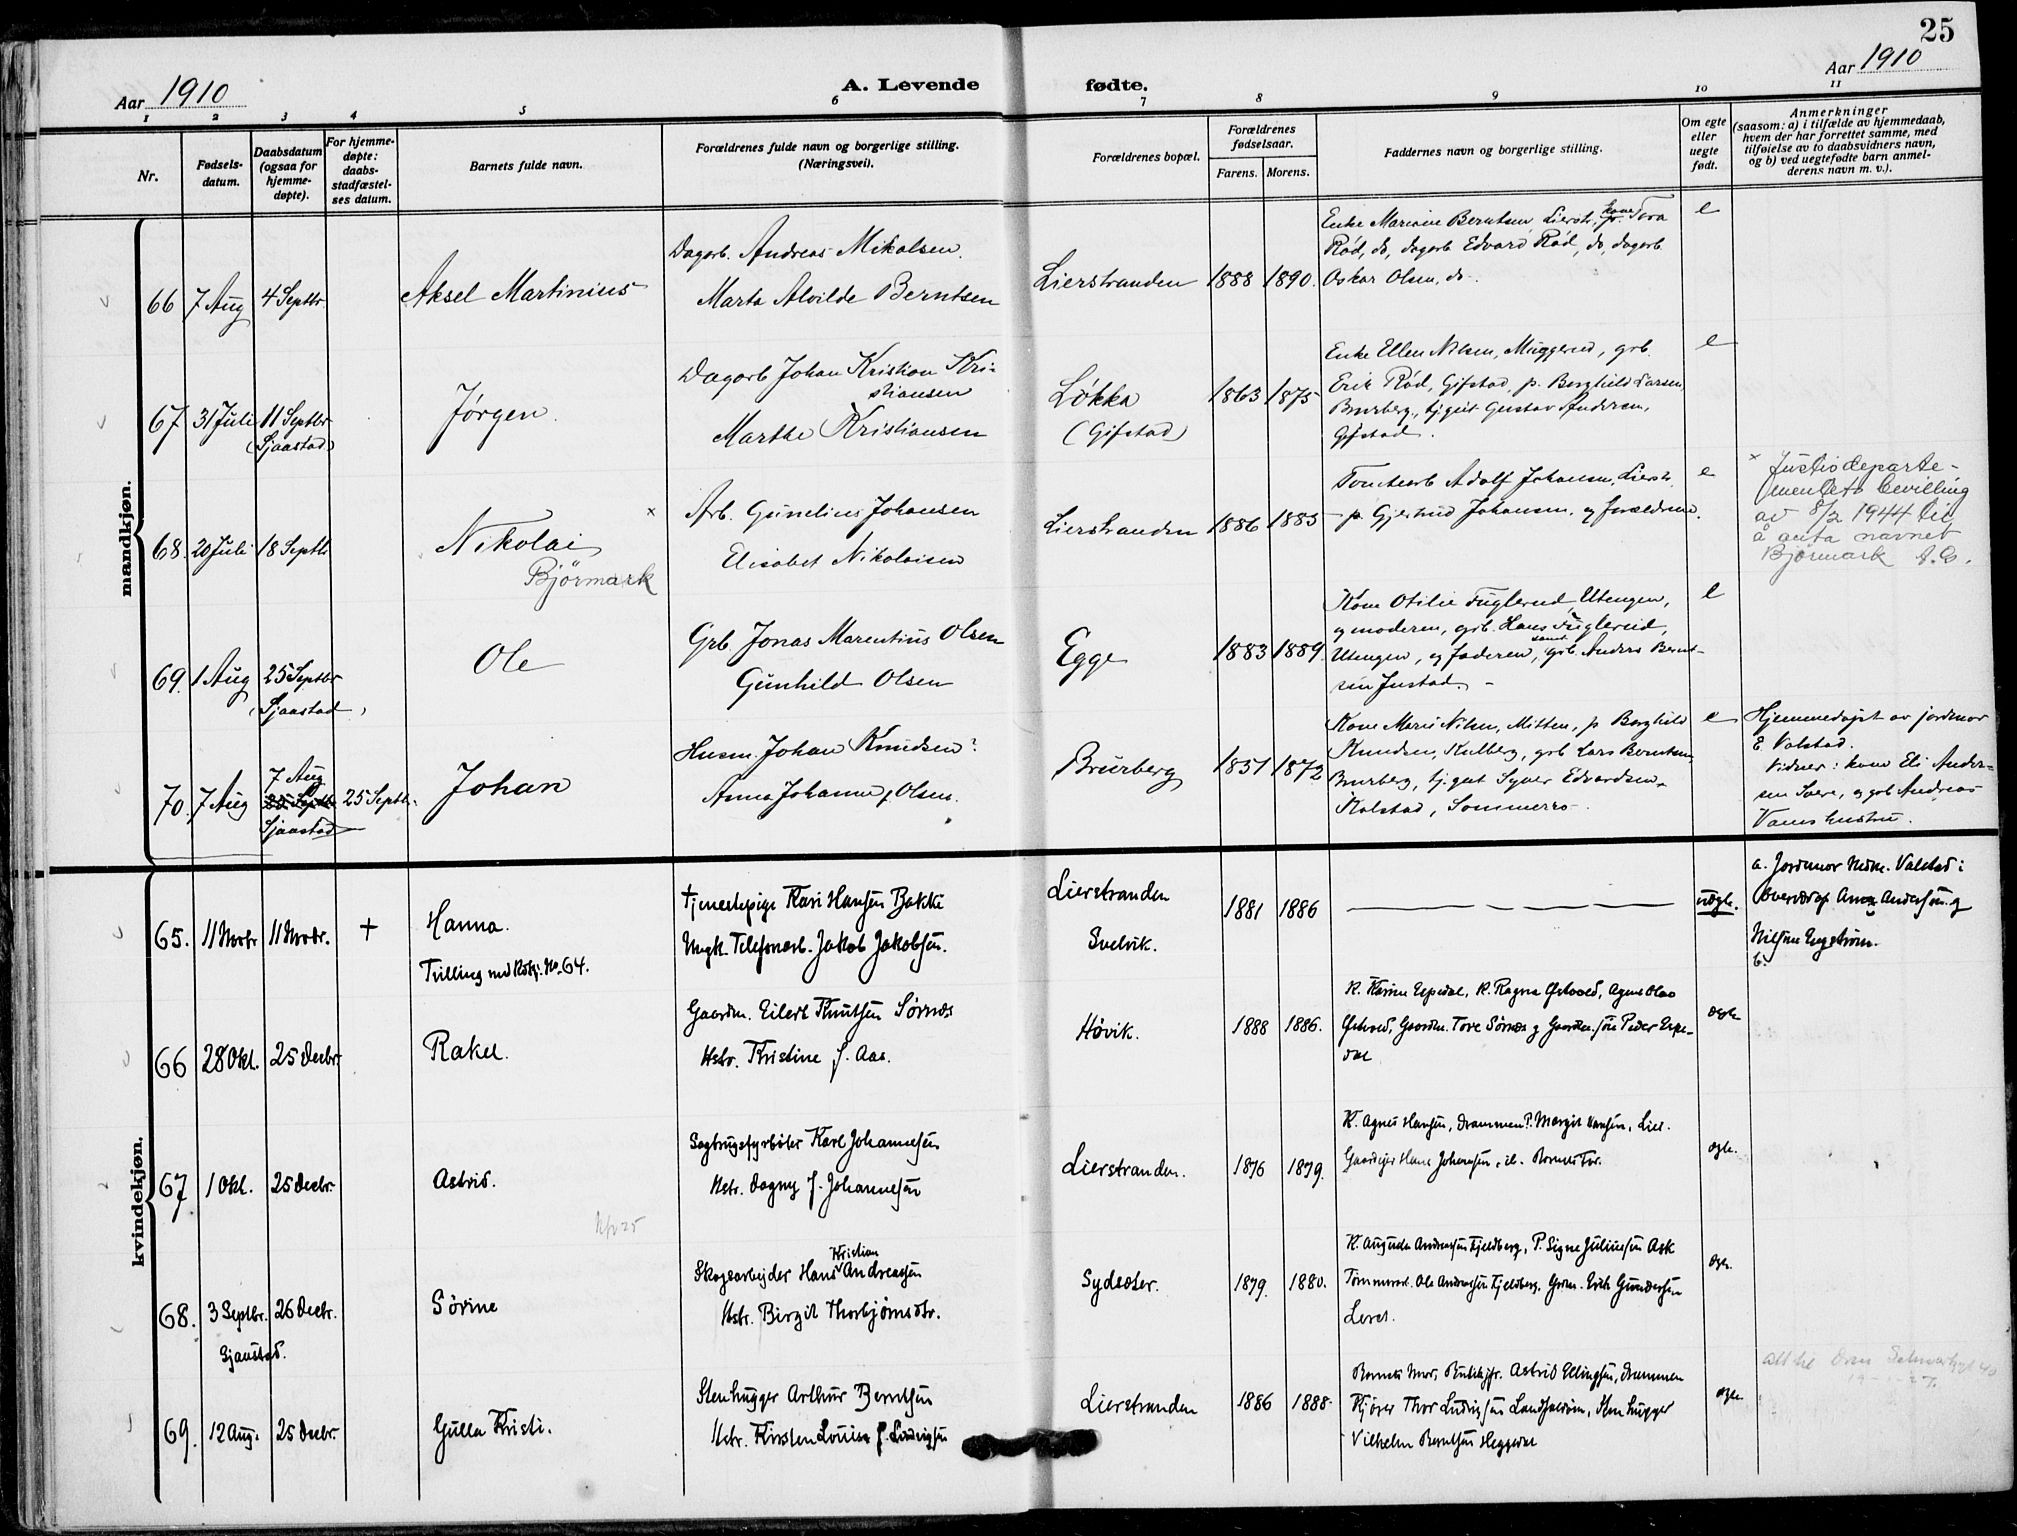 25
Aar 1910
A. Levende fødte.
Aar 1910
1 2 3 4 5 6 7 8 9 10 11
Nr.
Fødsels-
datum.
Daabsdatum
(ogsaa for
hjemme-
døpte).
For hjemme-
døpte:
daabs-
stadfæstel-
ses datum.
Barnets fulde navn.
Forældrenes fulde navn og borgerlige stilling.
(Næringsvei).
Forældrenes bopæl.
Forældrenes
fødselsaar.
Farens. Morens.
Faddernes navn og borgerlige stilling.
Om egte
eller
uegte
født.
Anmerkninger
(saasom: a) i tilfælde av hjemmedaab,
hvem der har forrettet samme, med
tilføielse av to daabsvidners navn,
og b) ved uegtefødte barn anmel-
derens navn m. v.).
mandkjøn.
66 7 Aug 4 Septbr. Aksel Martinius
Dagarb. Andreas Mikalsen.
Marta Alvilde Berntsen
Lierstranden 1888 1890.
Enke Mariane Berntsen, Lierstr, kone Tora
Rød, ds, dagarb Edvard Rød, ds, dagarb
Oskar Olsen, ds.
e
67 31 Juli 11 Septbr
(Sjaastad)
Jørgen.
Dagarb Johan Kristian Kri-
stiansen
Marthe Kristiansen
Løkka
(Gifstad)
1863 1875
Enke Ellen Nilsen, Muggerud, grb.
Erik Rød, Gifstad, p. Borghild Larsen,
Brurberg, tj.gut Gustav Andersen,
Gifstad.
e
68. 20 Juli 18 Septbr
Nikolai ×
Bjørmark
Arb. Gunelius Johansen
Elisabet Nikolaisen
Lierstranden 1886 1885
Tomtearb Adolf Johansen, Lierstr.
p. Gjertrud Johansen, og forældrene.
e
× Justisdeparte-
mentets bevilling
av 8/2 1944 til
å anta navnet
Bjørmark
69. 1 Aug 25 Septbr
(Sjaastad)
Ole
Grb. Jonas Marentius Olsen
Gunhild Olsen
Egge 1883 1889.
Kone Otilie Fuglerud, Utengen,
og moderen, grb. Hans Fuglerud,
Utengen, og faderen, samt grb. Anders Bernt-
sen Justad. -
e
70. 7 Aug 7 Aug
25 Septbr
Sjaastad
25 Septbr.
Johan
Husm. Johan Knudsen
Anna Johanne f. Olsen.
Brurberg 1851 1872
Kone Marie Nilsen, Mitten, p Borghild
Knudsen, Kulberg, grb Lars Berntsen
Brurberg, tj.gut Syver Edvardsen
Kolstad, Sommerro.
e
Hjemmedøpt av jordmor
E. Valstad.
Vidner: kone Eli Ander-
sen Sære, og grb Andreas
kvindekjøn.
65. 11 Novbr 11 Novbr. +
Hanna.
Tvilling med No. 64.
Tjenestepige Kari Hansen Bakke
Ungk. Telefonarb. Jakob Jakobsen.
Lierstranden
Svelvik.
1881 1886
uegte.
a. Jordmor Valstad i
overværelse Anna Andersen og
Nilsine Engstrøm.
b.
66 28 Okt. 25 Decbr.
Rakel.
Gaardm. Eilert Knutsen Sørnes
Hstr. Kristine f. Aas.
Høvik. 1888 1886.
K. Karine Espedal, K. Ragna Østvold, Agent Olav
Østvold, Gaardm. Tore Sørnes og Gaardm. søn Peder Espe-
dal
egte
67 1 Okt. 25 Decbr.
Astrid.
Sagbrugsfyrbøter Karl Johannesen
Hstr. Dagny f. Johannesen
Lierstranden. 1876 1879.
K. Agnes Hansen, Drammen P. Margit Hansen, Lier.
Gaardeier Hans Johansen, ib. Barnets Far.
egte.
68. 3 Septbr. 26 Decbr.
Sjaastad.
Sørine
Skogsarbejder Hans Kristian Andreassen
Hstr. Birgit Thorbjørnsdtr.
Sydsæter. 1879. 1880.
K. Augusta Andreassen Fjeldberg, P. Signe Juliussen Ask
Tømmerarb. Ole Andreassen Fjeldberg, Grdm. Erik Gundersen
egte.
69. 12 Aug. 25 Decbr.
Gulla Kristi.
Stenhugger Arthur Berntsen
Hstr. Kirsten Louise f. Ludvigsen
Lierstranden 1886 1888
Barnets Mor, Butikjfr. Astrid Ellingsen, Drammen
Kjører Thor Ludvigsen Landfaldøen, Stenhugger
Vilhelm Berntsen Heggedal
egte.